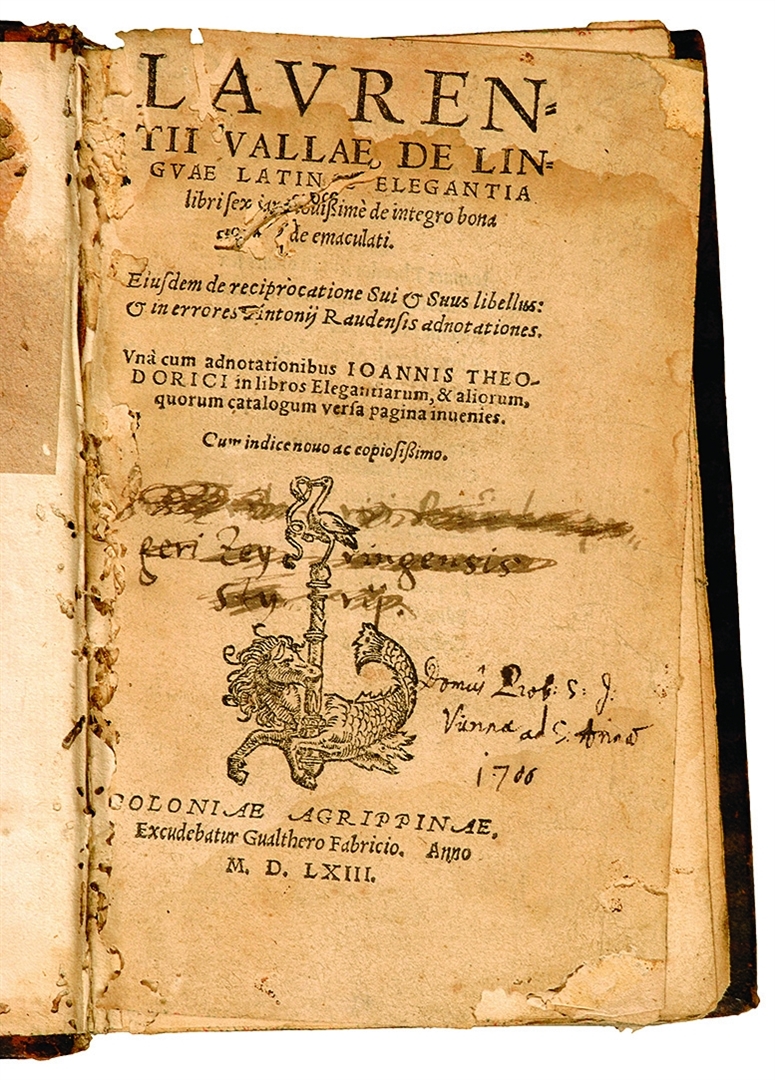 LAVREN=
TII VALLAE DE LIN=
GVAE LATINAE ELEGANTIA
libri ſex iam nouißimè de integro bona
de emaculati.
Eiuſdem de reciprocatione Sui & Suus libellus:
& in errores Antonij Raudenſis adnotationes.
Vnà cum adnotationibus IOANNIS THEO-
DORICI in libros Elegantiarum, & aliorum,
quorum catalogum verſa pagina inuenies.
Cum indice nouo ac copioſißimo.
geri
ingensis
Domûs Prob: S: J:
Viennæ ad S. Annã
1706
COLONIAE AGRIPPINAE.
Excudebatur Gualthero Fabricio. Anno
M. D. LXIII.